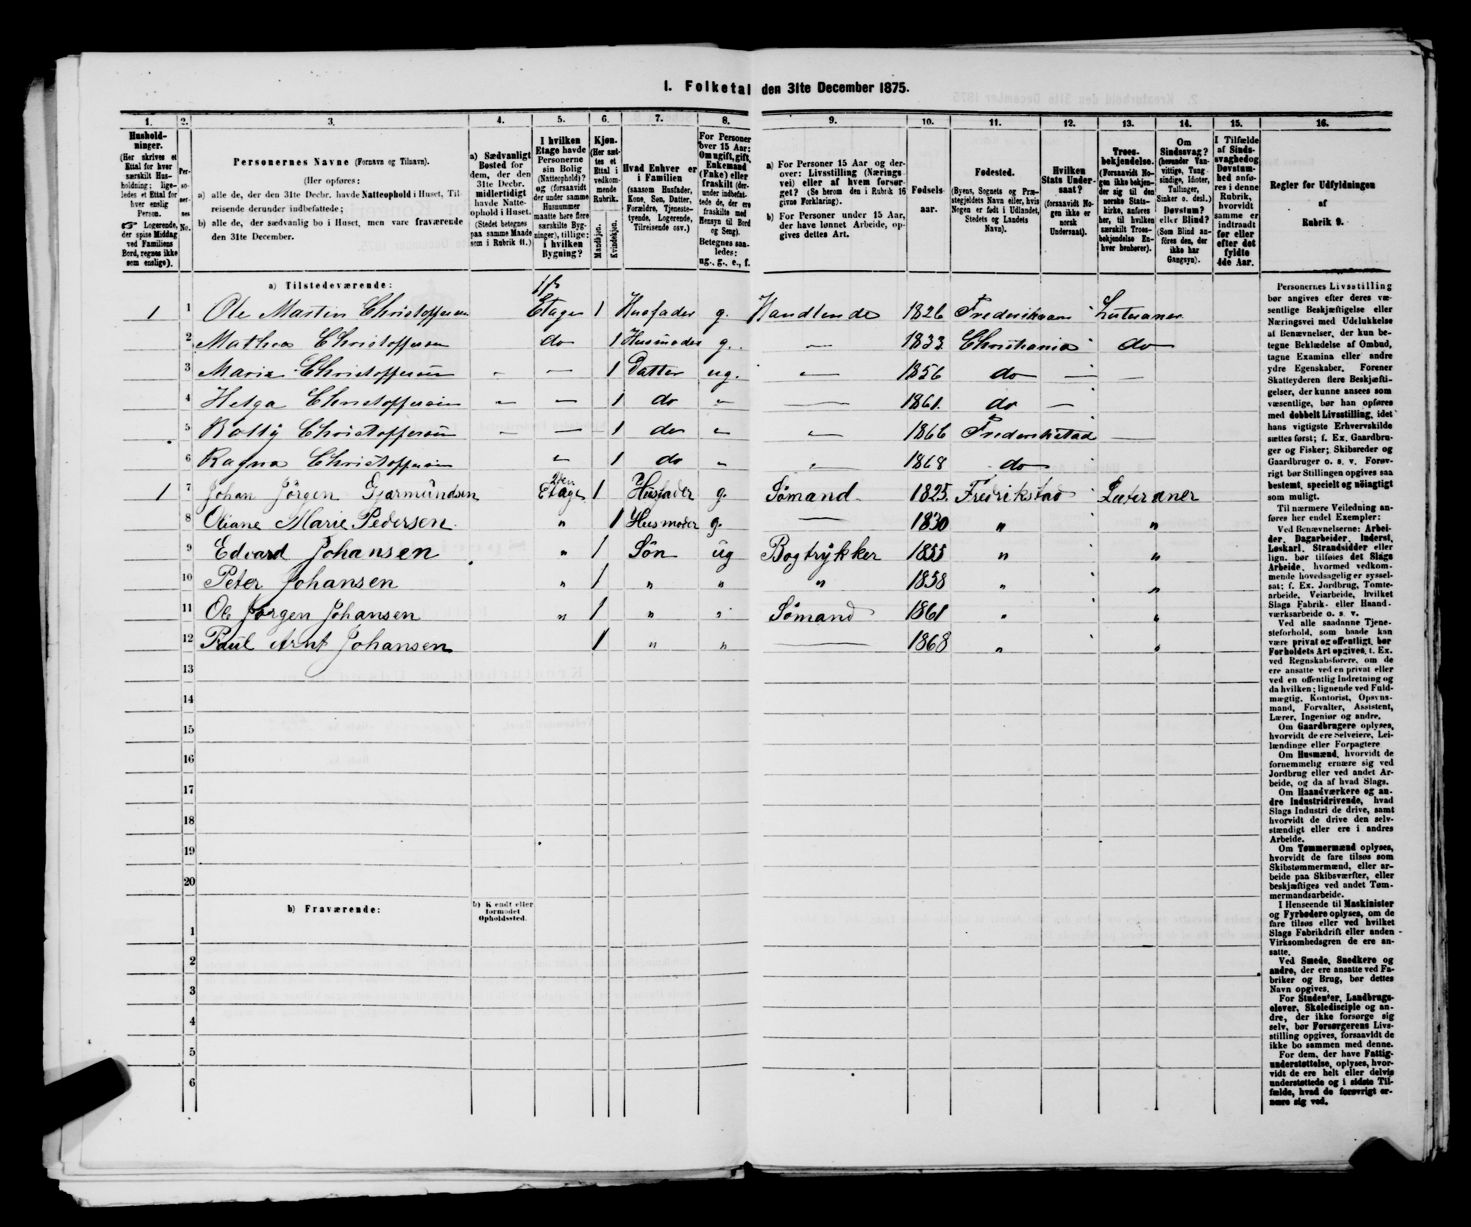 1. Folketal den 31te December 1875.
1. 2. 3. 4. 5. 6. 7. 8. 9. 10. 11. 12. 13. 14. 15. 16.
Hushold-
ninger.
(Her skrives et
Ettal for hver
særskilt Hus-
holdning; lige-
ledes et Ettal for
hver enslig
Person.
☞ Logerende,
der spise Middag
ved Familiens
Bord, regnes ikke
som enslige).
Personernes Navne (Fornavn og Tilnavn).
(Her opføres:
a) alle de, der den 31te Decbr. havde Natteophold i Huset, Til-
reisende derunder indbefattede;
b) alle de, der sædvanlig bo i Huset, men vare fraværende
den 31te December.
a) Sædvanligt
Bosted for
dem, der den
31te Decbr.
midlertidigt
havde Natte-
ophold i Huset.
(Stedet betegnes
paa samme Maade
som i Rubrik 11.)
I hvilken
Etage havde
Personerne
sin Bolig
(Natteophold)?
og (forsaavidt
der under samme
Husnummer
maatte høre flere
særskilte Byg-
ninger), tillige:
i hvilken
Bygning?
Kjøn.
(Her sæt-
tes et
Ettal i
vedkom-
mende
Rubrik.
Mandkjøn.
Kvindekjøn.
Hvad Enhver er
i Familien
(saasom Husfader,
Kone, Søn, Datter,
Forældre, Tjeneste-
tyende, Logerende,
Tilreisende osv.)
For Personer
over 15 Aar:
Om ugift, gift,
Enkemand
(Enke) eller
fraskilt (der-
under indbefat-
tede de, der ere
fraskilte med
Hensyn til Bord
og Seng).
Betegnes saa-
ledes:
ug., g., e., f.
a) For Personer 15 Aar og der-
over: Livsstilling (Nærings-
vei) eller af hvem forsør-
get? (Se herom den i Rubrik 16
givne Forklaring).
b) For Personer under 15 Aar,
der have lønnet Arbeide, op-
gives dettes Art.
Fødsels-
aar.
Fødested.
(Byens, Sognets og Præ-
stegjeldets Navn eller, hvis
Nogen er født i Udlandet,
Stedets og Landets
Navn).
Hvilken
Stats Under-
saat?
(forsaavidt No-
gen ikke er
norsk
Undersaat).
Troes-
bekjendelse.
(Forsaavidt No-
gen ikke bekjen-
der sig til den
norske Stats-
kirke, anføres
her, til hvilken
særskilt Troes-
bekjendelse En-
hver henhører).
Om
Sindssvag?
(herunder Van-
vittige, Tung-
sindige, Idioter,
Tullinger,
Sinker o. desl.)
Døvstum?
eller Blind?
(Som Blind an-
føres den, der
ikke har
Gangsyn).
I Tilfælde
af Sinds-
svaghed og
Døvstum-
hed anfø-
res i denne
Rubrik,
hvorvidt
samme er
indtraadt
før eller
efter det
fyldte
4de Aar.
Regler for Udfyldningen
af
Rubrik 9.
a) Tilstedeværende:
1 1 Ole Martin Christoffersen Etage 1 Husfader g. Handlende 1826 Frederiksværn Luteraner
2 Mathea Christoffersen do 1 Husmoder g. „ 1833 Christiania do
3 Maria Christoffersen – – 1 Datter ug. „ 1856 do – –
4 Helga Christoffersen – – 1 do „ – 1861. do –
5 Christoffersen – – 1 do „ „ 1866 Frederikstad –
6 Ragna Christoffersen „ 1 do „ „ 1868 do
1 7 Johan Jörgen Gjærmundsen 2den Etage 1 Husfader g. Sømand 1825. Fredrikstad Luteraner
8 Oliane Marie Pedersen „ 1 Husmoder g. – 1830 „ „
9 Edvard Johansen „ 1 Søn ug Bogtrykker 1855 „ „
10 Peter Johansen „ 1 „ „ „ 1858 „ „
11 Ole Jørgen Johansen „ 1 „ „ Sømand 1861 „ „
12 Paul Arnt Johansen 1 „ „ – 1868 „ „
13
14
15
16
17
18
19
20
b) Fraværende:
b) Kjendt eller
formodet
Opholdssted.
1
2
3
4
5
6
Personernes Livsstilling
bør angives efter deres væ-
sentlige Beskjæftigelse eller
Næringsvei med Udelukkelse
af Benævnelser, der kun be-
tegne Beklædelse af Ombud,
tagne Examina eller andre
ydre Egenskaber. Forener
Skatteyderen flere Beskjæfti-
gelser, der kunne ansees som
væsentlige, bør han opføres
med dobbelt Livsstilling, idet
hans vigtigste Erhvervskilde
sættes først; f. Ex. Gaardbru-
ger og Fisker; Skibsreder og
Gaardbruger o. s. v. Forøv-
rigt bør Stillingen opgives saa
bestemt, specielt og nøiagtigt
som muligt.
Til nærmere Veiledning an-
føres her endel Exempler:
Ved Benævnelserne: Arbei-
der, Dagarbeider, Inderst,
Løskarl, Strandsidder eller
lign. bør tilføies det Slags
Arbeide, hvormed vedkom-
mende hovedsagelig er syssel-
sat; f. Ex. Jordbrug, Tomte-
arbeide, Veiarbeide, hvilket
Slags Fabrik- eller Haand-
værksarbeide o. s. v.
Ved alle saadanne Tjene-
steforhold, som baade kan
være privat og offentligt, bør
Forholdets Art opgives, t. Ex.
ved Regnskabsførere, om de
ere ansatte ved en privat eller
ved en offentlig Indretning og
da hvilken; lignende ved Fuld-
mægtig, Kontorist, Opsyns-
mand, Forvalter, Assistent,
Lærer, Ingeniør og andre.
Om Gaardbrugere oplyses,
hvorvidt de ere Selveiere, Lei-
lændinge eller Forpagtere
Om Husmænd, hvorvidt de
fornemmelig ernære sig ved
Jordbrug eller ved andet Ar-
beide, og da af hvad Slags.
Om Haandværkere og an-
dre Industridrivende, hvad
Slags Industri de drive, samt
hvorvidt de drive den selv-
stændigt eller ere i andres
Arbeide.
Om Tømmermænd oplyses,
hvorvidt de fare tilsøs som
Skibstømmermænd, eller ar-
beide paa Skibsværfter, eller
beskjæftiges ved andet Tøm-
mermandsarbeide.
I Henseende til Maskinister
og Fyrbødere oplyses, om de
fare tilsøs eller ved hvilket
Slags Fabrikdrift eller anden
Virksomhedsgren de ere an-
satte.
Ved Smede, Snedkere og
andre, der ere ansatte ved Fa-
briker og Brug, bør dettes
Navn opgives.
For Studenter, Landbrugs-
elever, Skoledisciple og an-
dre, der ikke forsørge sig
selv, bør Forsørgerens Livs-
stilling opgives, forsaavidt de
ikke bo sammen med denne.
For dem, der have Fattig-
understøttelse, oplyses, hvor-
vidt de ere helt eller delvis
understøttede og i sidste Til-
fælde, hvad de forøvrigt er-
nære sig ved.